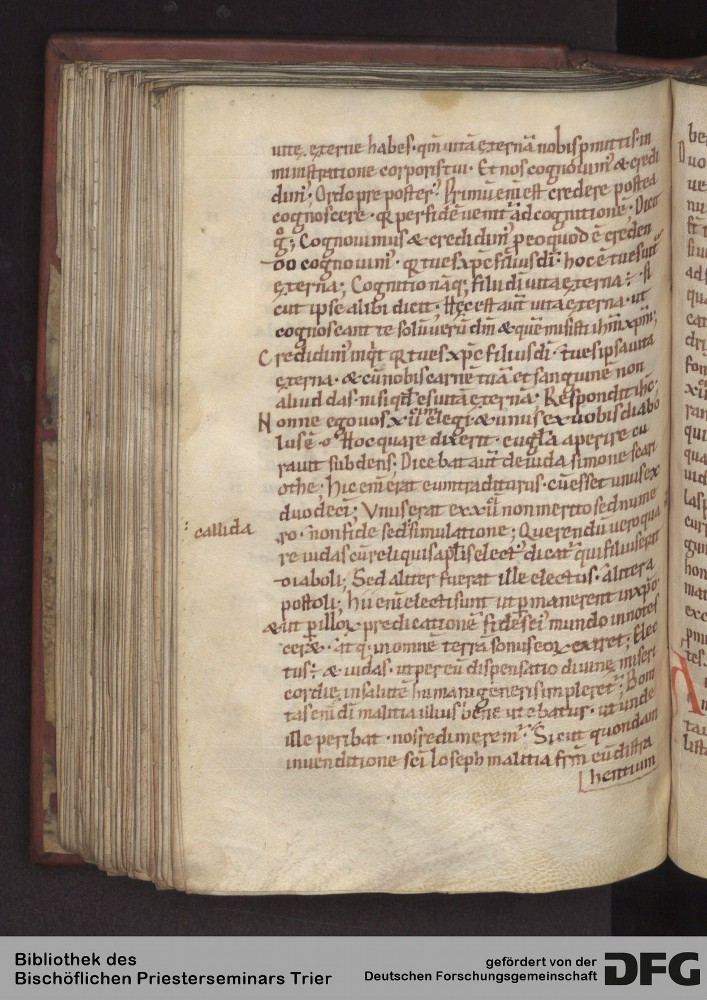 uitę ęternę habes· qm̄ uitā ęternā nobis pmittis· in
ministratione corporis tui· Et nos cognouim᷒ & credi
dim᷒; Ordo prepost er᷒· Primū enī est credere postea
cognoscere· q̄ per fidē uenit᷒ ad cognitionē; Dicit
g̊; Cognouimus & credidim᷒ p eo quod ē creden
do cognouim᷒· q̄ tu es xp̄c filius dī· hoc ē tu es uita
ęterna; Cognitio nāq; filii dī uita ęterna ē· si
cut ipse alibi dicit· Hęc est aut̄ uita ęterna· ut
cognoscant te solū uerū dm̄ & quē misisti ihm̄ xpm̄;
Credidim᷒ inq̇t q̄ tu es xp̄c filius dī· tu es ipsa uita
ęterna· & cū nobis carnē tuā et sanguinē non
aliud das· nisi qd̄ es uita ęterna· Respondit ihc̄·
Nonne ego uos xii elegi· & unus ex uobis diabo
lus ē· Hoc quare dixerit· eugl̄a aperire cu
rauit subdens; Dicebat aut̄ de iuda simone scari
othe· hic enī erat eum traditurus· cū esset unus ex
duodecī; Vnus erat ex xii non merito sed nume
ro· non fide sed simulatione; Querendū uero qua
callida
re iudas cū reliquis apl̄is elect᷒ dicat᷒ qui filius erat
diaboli; Sed aliter fuerat ille electus· alit̄ cęteri a
postoli; hii enī electi sunt ut pmanerent in xp̄o·
& ut p illoꝝ predicationē fides ei᷒ mundo innotes
ceret· atq; in omnē terrā sonus eoꝝ exiret; Elec
tus ē & iudas· ut per eū dispensatio diuinę miseri
cordię in salutē humani generis impleret᷒; Boni
tas enī dī malitia illius bene utebatur· ut unde
ille peribat· nos redimerem᷒· Sicut quondam
in uenditione sc̄i Ioseph malitia frm̄ eū distra
hentium
Bibliothek des
Bischöflichen Priesterseminars Trier
gefördert von der
Deutschen Forschungsgemeinschaft
DFG